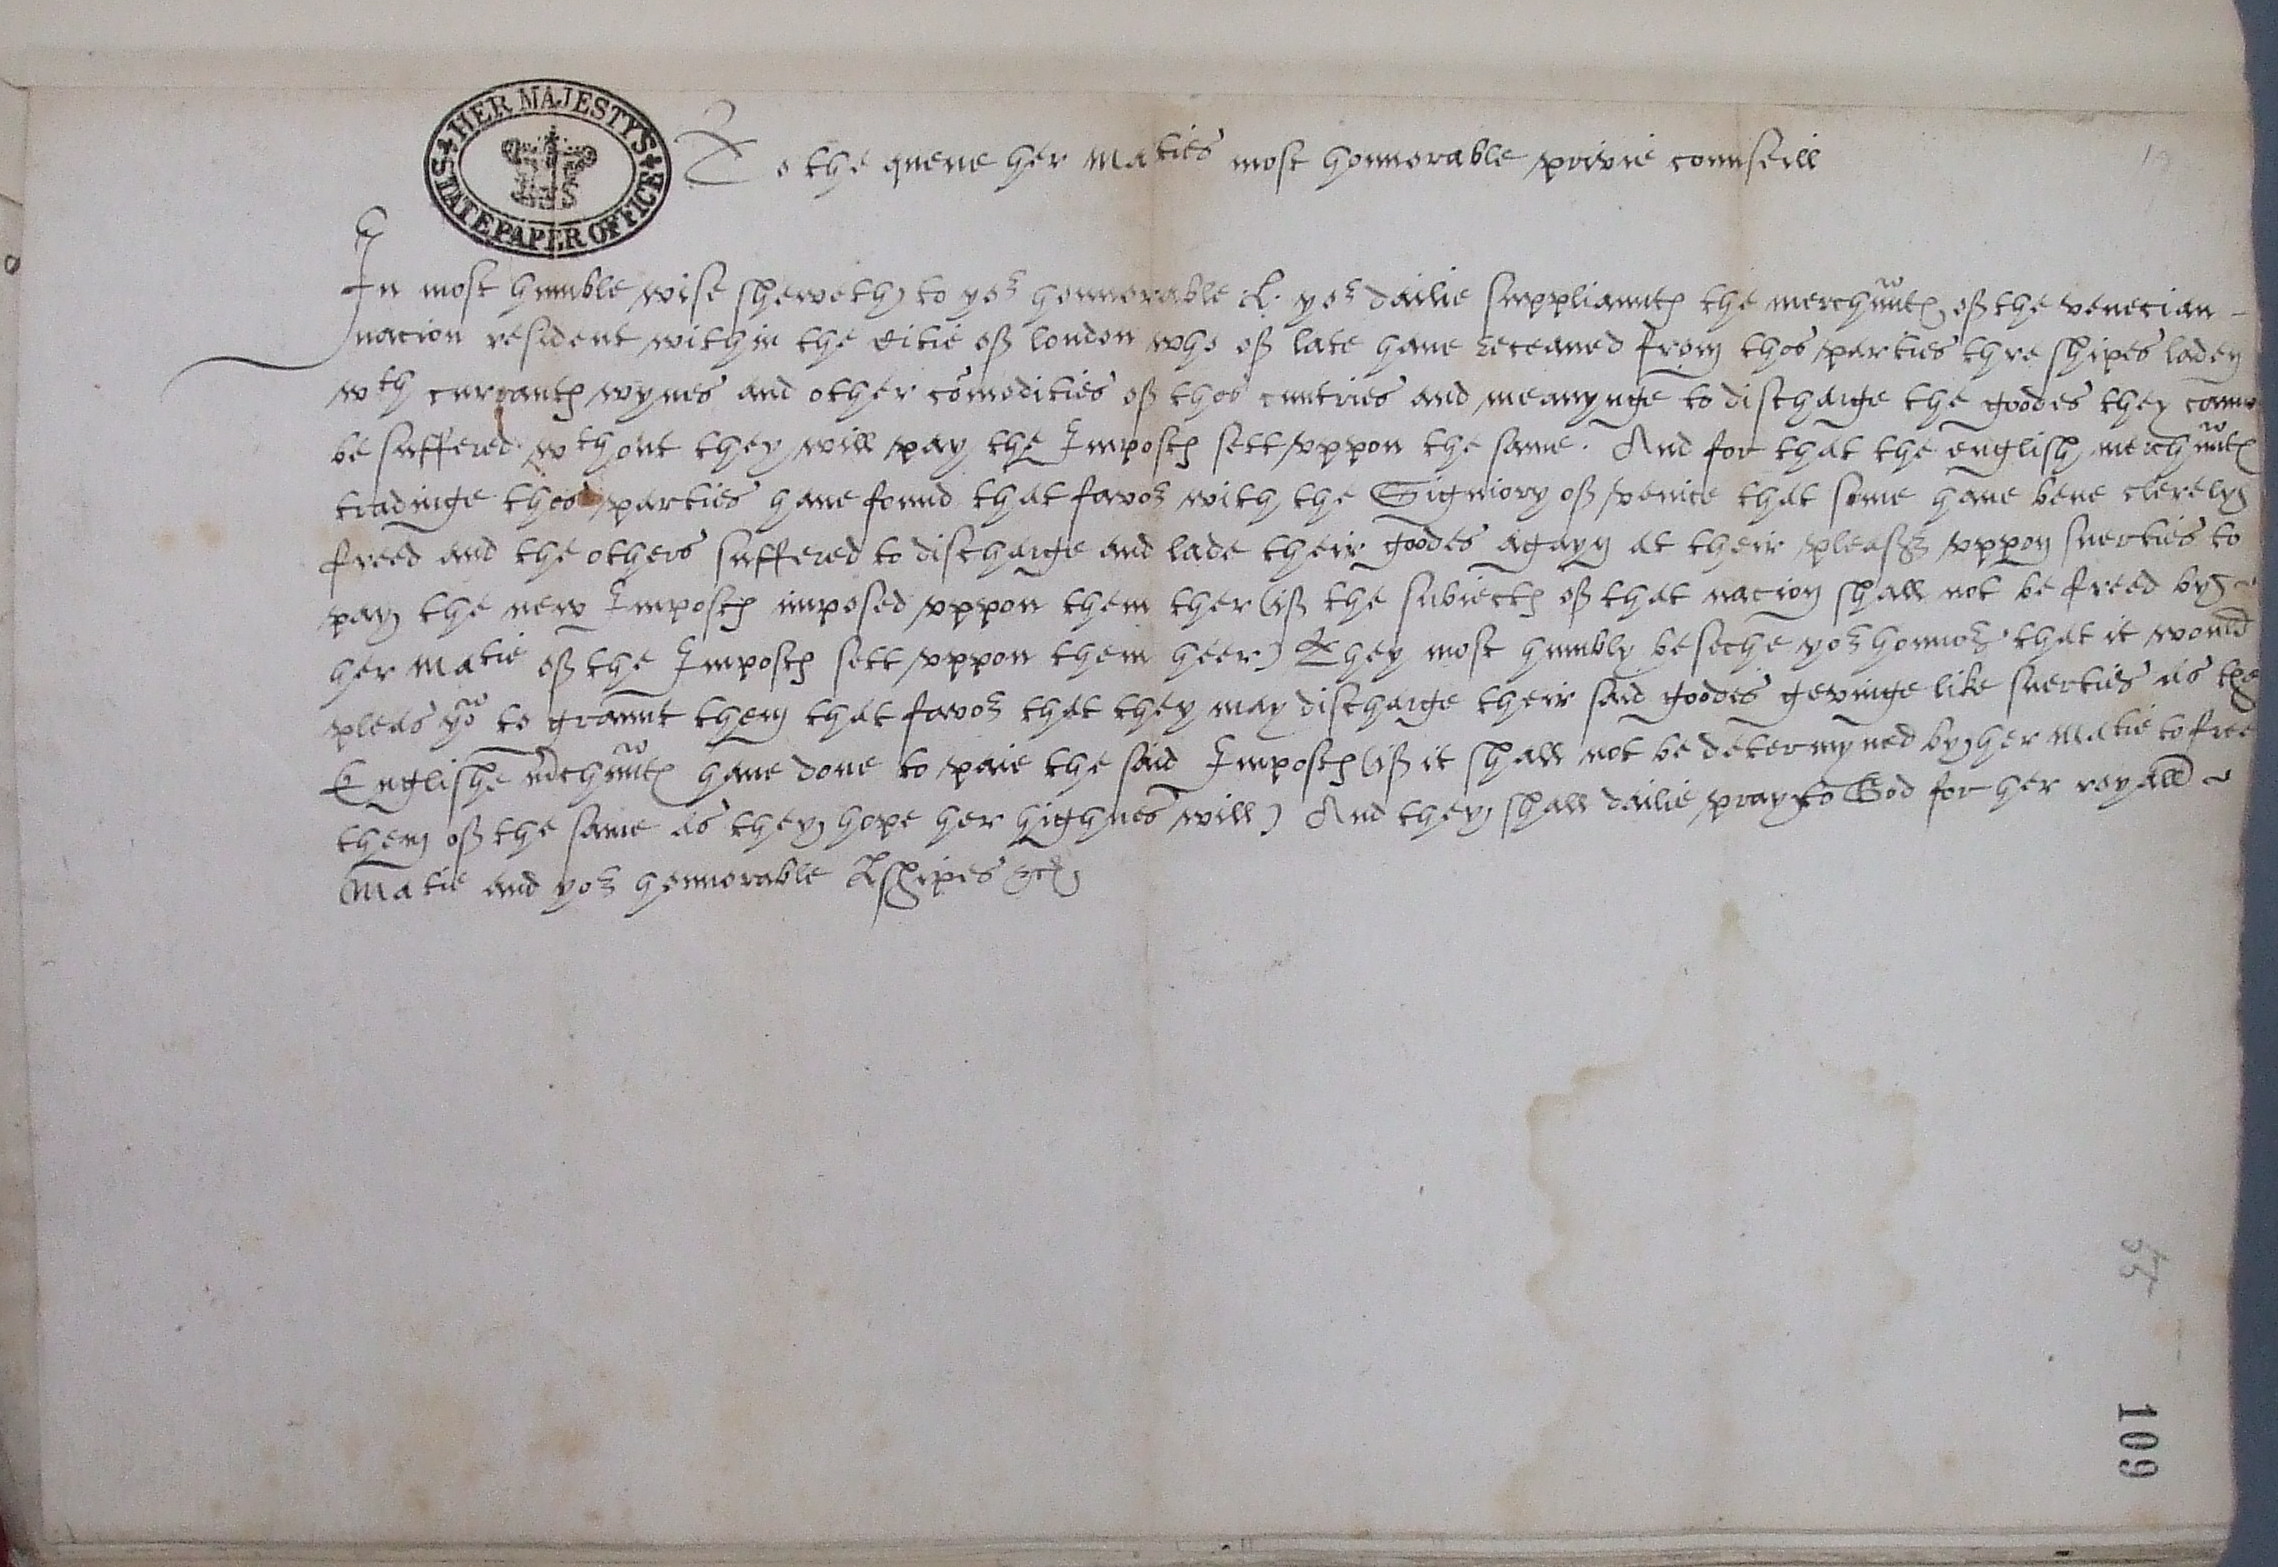 HER MAJESTYS STATE PAPER OFFICE
To the quene her Maties most honnorable privie counseill
In most humble wise sheweth to yor honnorable L. yor dailie suppliauntes the merchauntes of the venecian
nacion resident within the Citie of london who of late haue receaued from thos parties thre shipes laden
wth currantes wynes and other comodities of thos cuntries and meanynge to discharge the goodes they canno
be suffered wthout they will pay the Impostes sett vppon the same. And for that the english merchauntes
tradinge thos parties haue found that favor with the Signiory of venice that some haue bene clerely
freed and the others suffered to discharge and lade their goodes agayn at their pleasr vppon suerties to
pay the new Impostes imposed vppon them ther (if the subiectes of that nacion shall not be freed by
her Matie of the Impostes sett vppon them heer) They most humbly beseche yor honnors that it would
pleas you to graunt them that favor that they may discharge their said goodes gevinge like suerties as the
Englishe merchauntes haue done to paie the said Impostes (if it shall not be determyned by her Matie to free
them of the same as they hope her highnes will) And they shall dailie pray to God for her royall
Matie and yor honnorable Lshipes &c
109